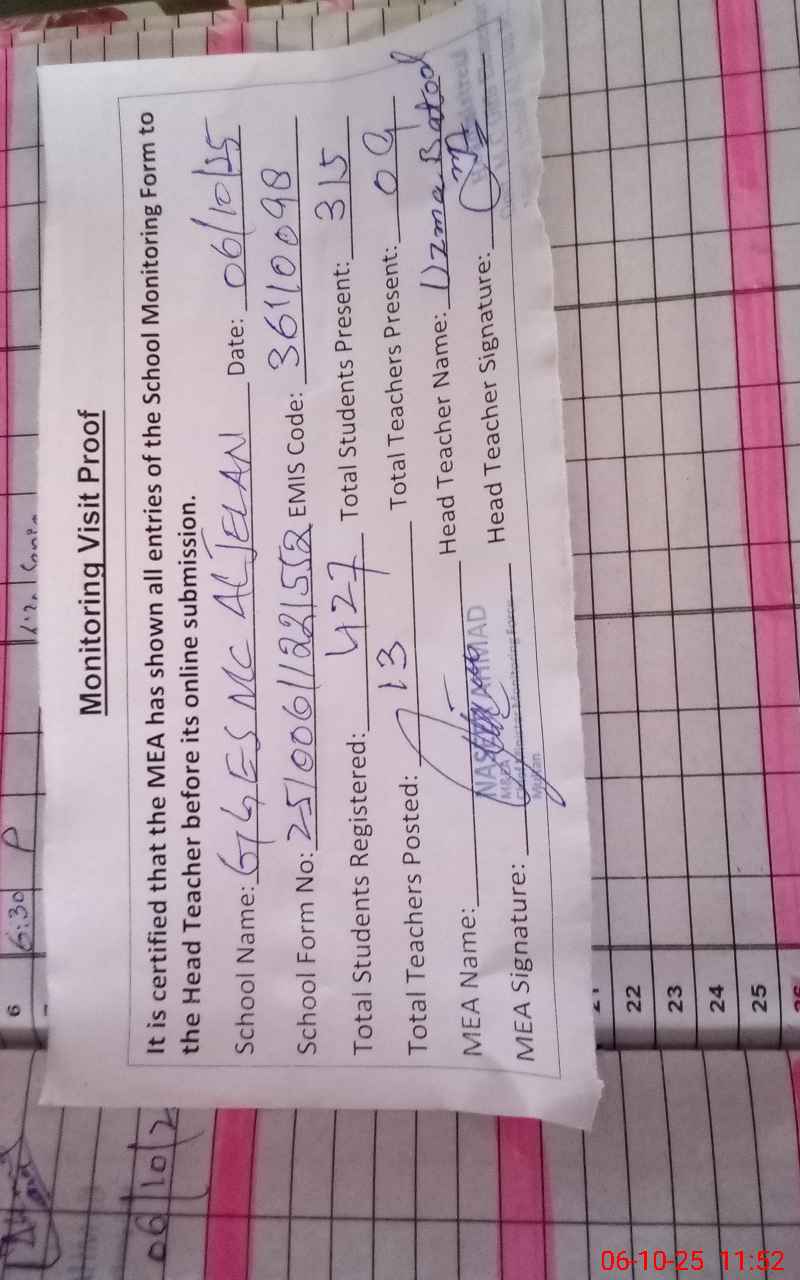 Monitoring Visit Proof
It is certified that the MEA has shown all entries of the School Monitoring Form to
the Head Teacher before its online submission.
School Name: GGES MC AL JELAN Date: 06/10/25
School Form No: 25100611221552 EMIS Code: 36110098
Total Students Registered: 427 Total Students Present: 315
Total Teachers Posted: 13 Total Teachers Present: 09
MEA Name: Head Teacher Name: Uzma Batool
MEA Signature: Head Teacher Signature:
AHMAD
Monitoring Force
Multan
6 6:30 P
06/10/2
22
23
24
25
26
06-10-25 11:52